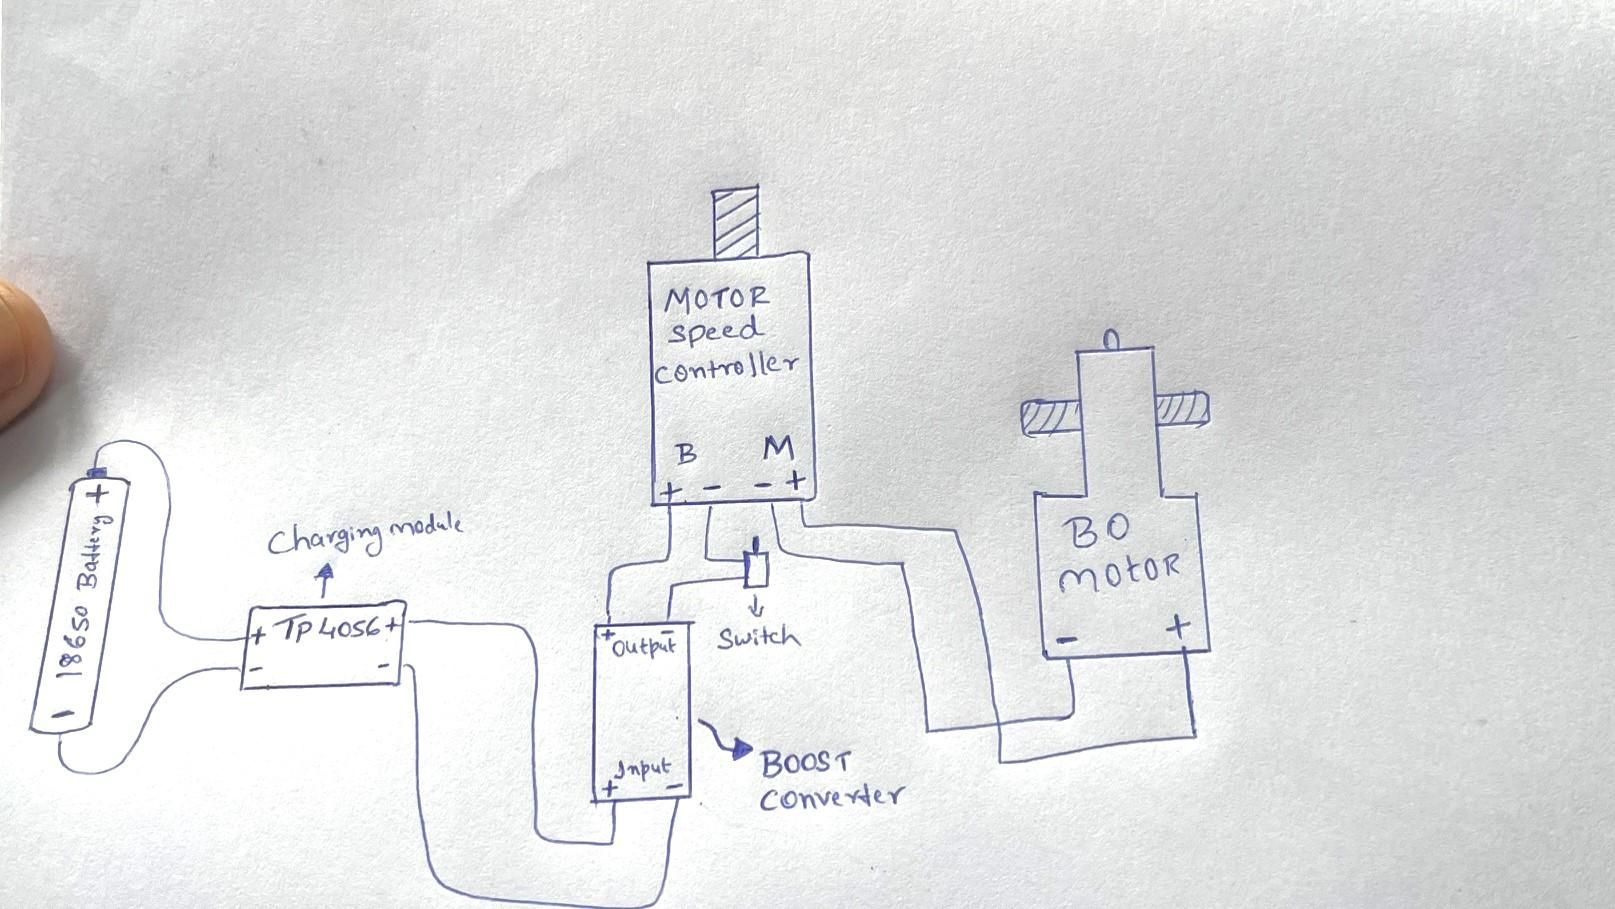 18650 Battery
+
-
Charging module
+ TP4056 +
- -
MOTOR
speed
controller
B M
+ - - +
Switch
+ -
Output
Input
+ -
BOOST
converter
BO
motor
- +